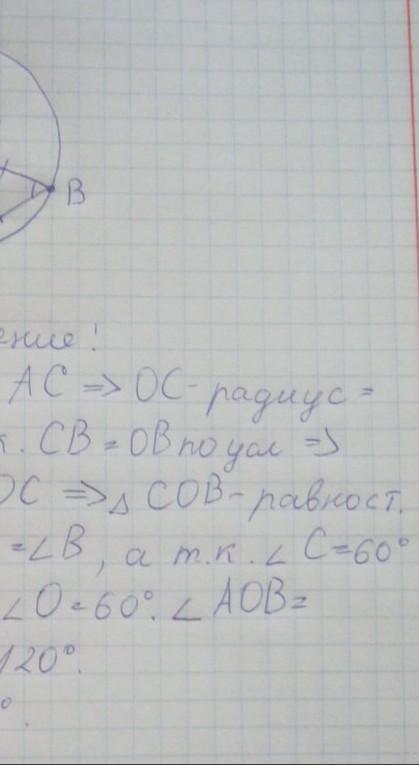 B
ение!
AC => OC - радиус =
к. CB = OB по усл =>
OC => △ COB - равност.
= ∠B, а т.к. ∠ C = 60°
∠O = 60°. ∠ AOB =
120°.
°.